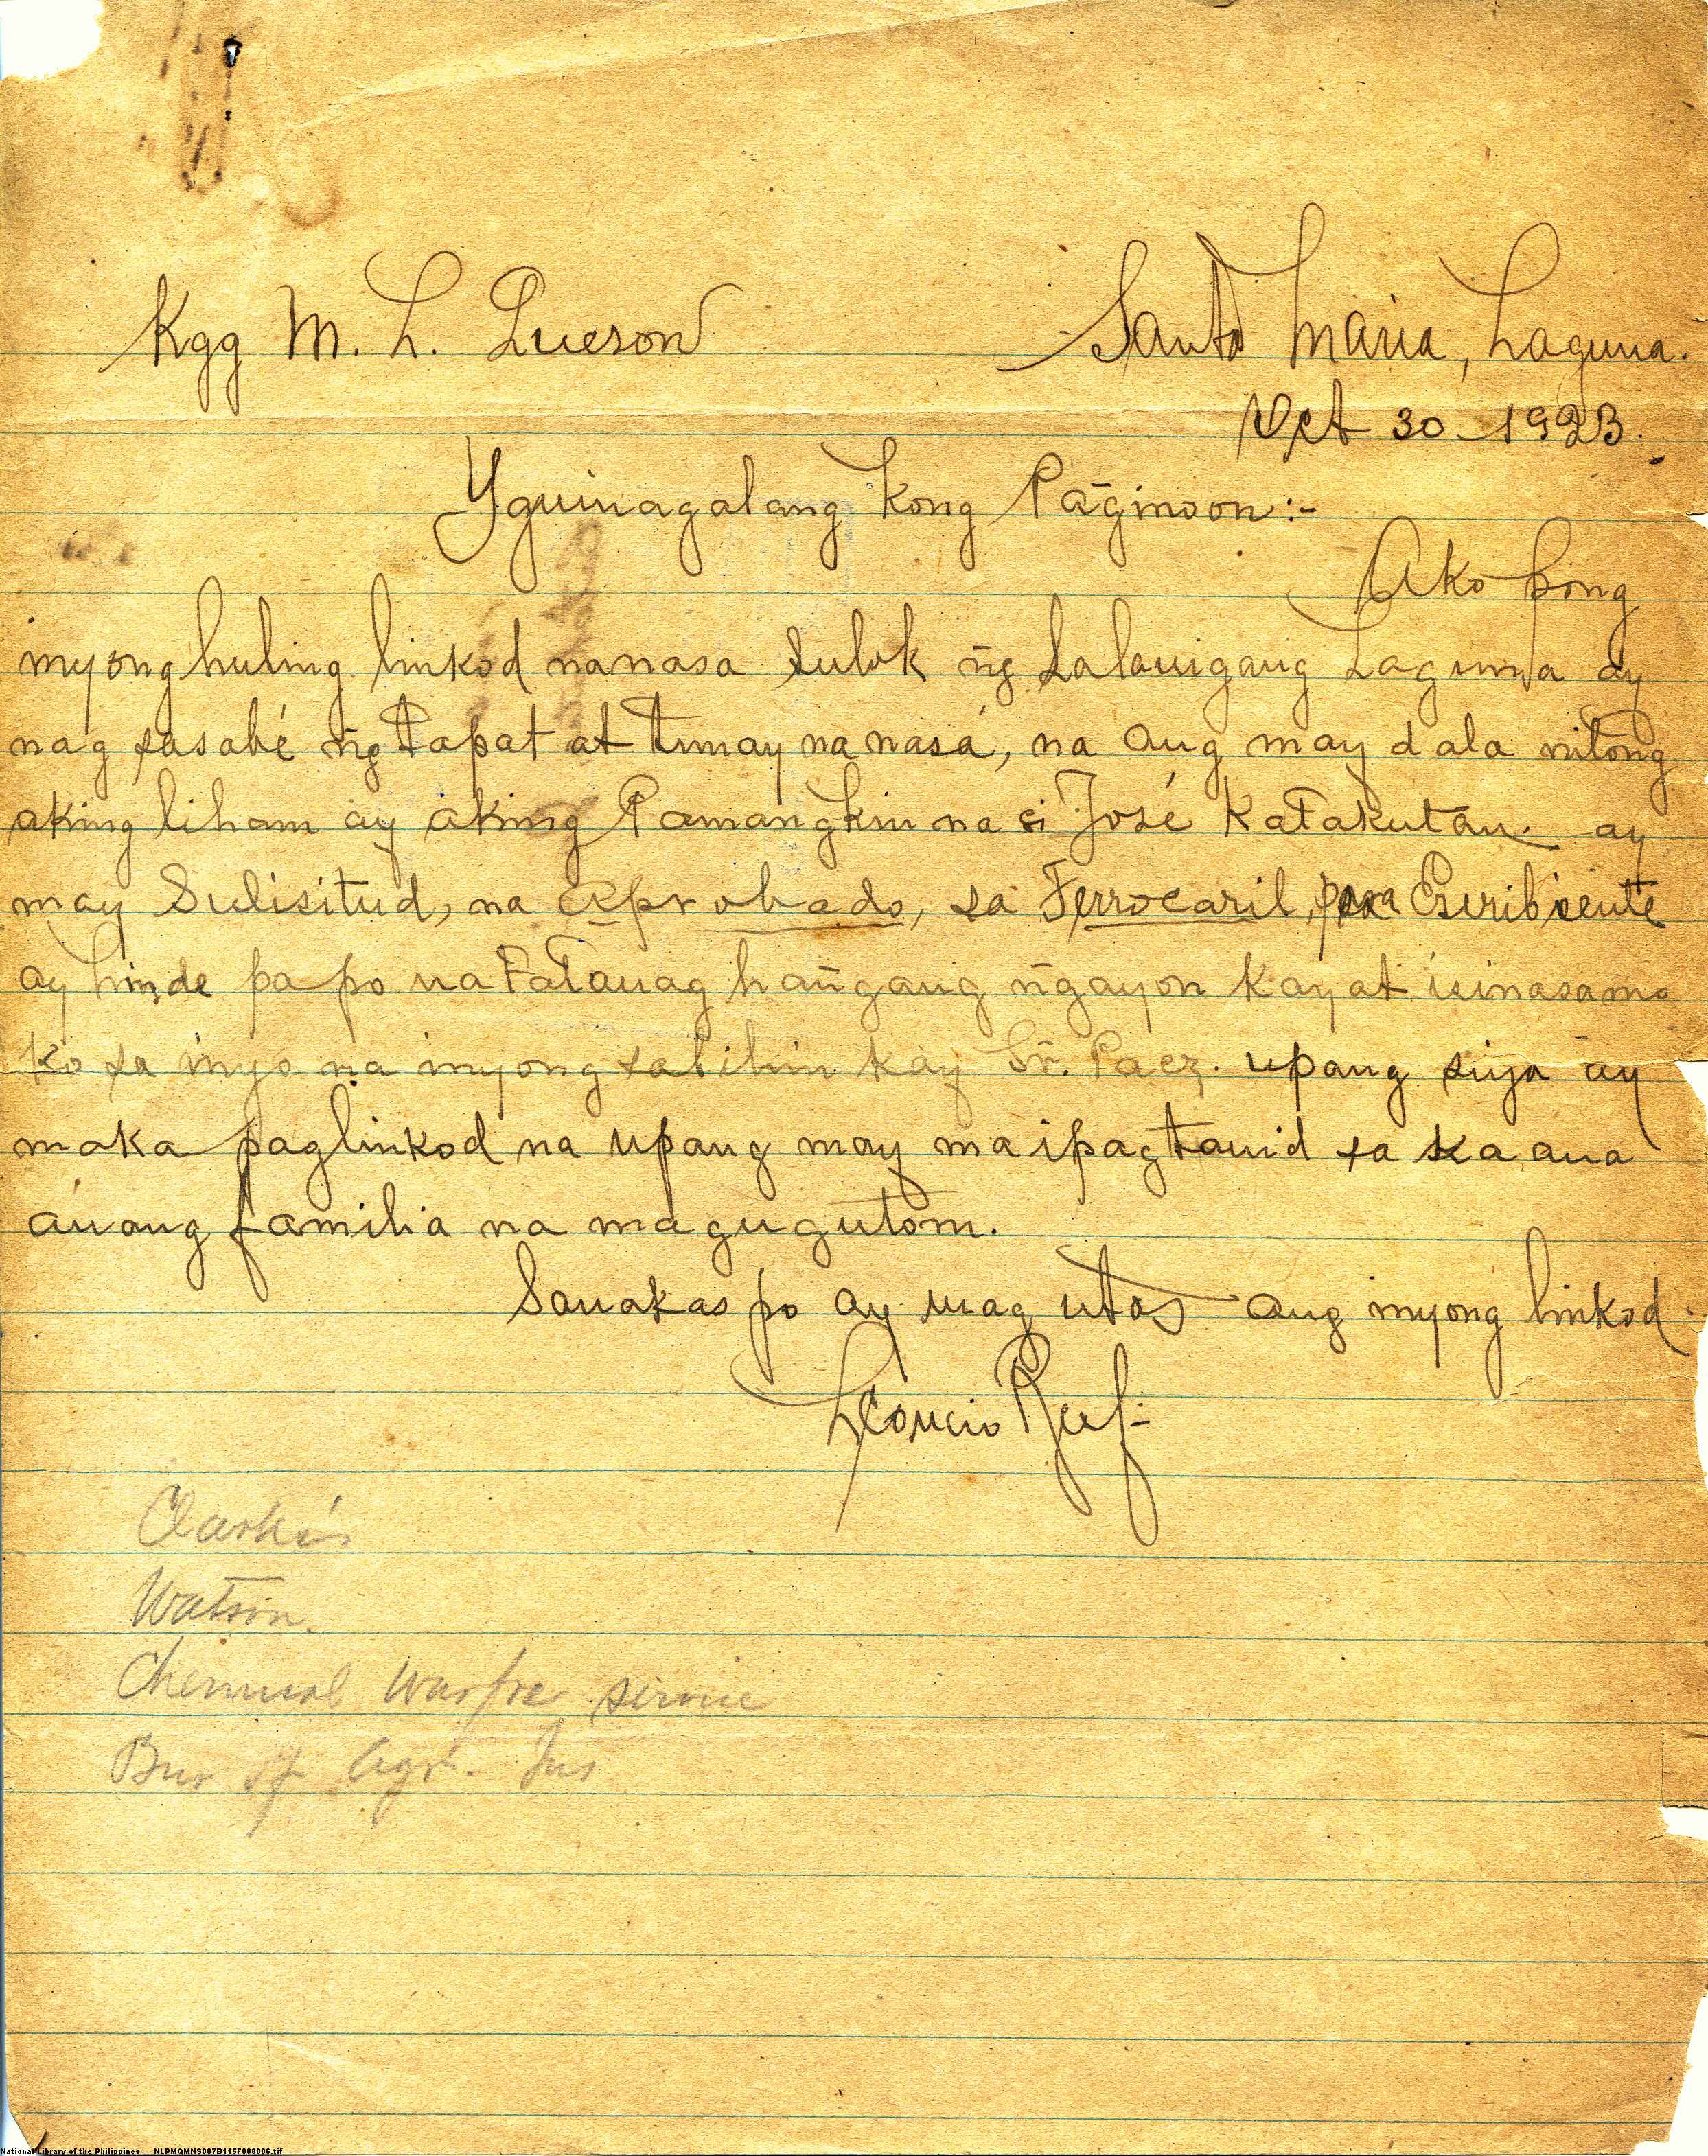 Kgg M. L. Queson
Santa Maria, Laguna.
Oct 30 1923.
Yguinagalang kong Pãginoon:-
Ako pong
inyong huling linkod na nasa sulok ñg Lalauigang Laguna ay
nag sasabé ñg tapat at tunay na nasá, na ang may dala nitong
aking liham ay aking Pamangkin na si José Katakutan. ay
may Sulisitud, na Aprobado, sa Ferrocaril, para Escribiente
ay hinde pa po na tatauag hañgang ñgayon kayat isinasamo
ko sa inyo na inyong sabihin kay Sr. Paez. upang siya ay
maka paglinkod na upang may maipagtauid sa kaaua
áuang familia na magugutom.
Sanakas po ay mag utos ang inyong linkod.
Leoncio
Watson.
Chemical Warfre service
Bur of Agr.
National Library of the Philippines NLPMQMNS007B115F008006.tif